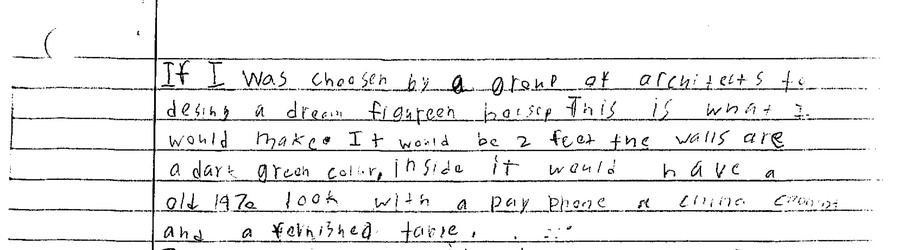 If I was choosen by a group of architects to
desing a dream figureen housep This is what I
would make. It would be 2 feet the walls are
a dark green color, inside it would have a
old 1970 look with a pay phone a
and a fernished table.